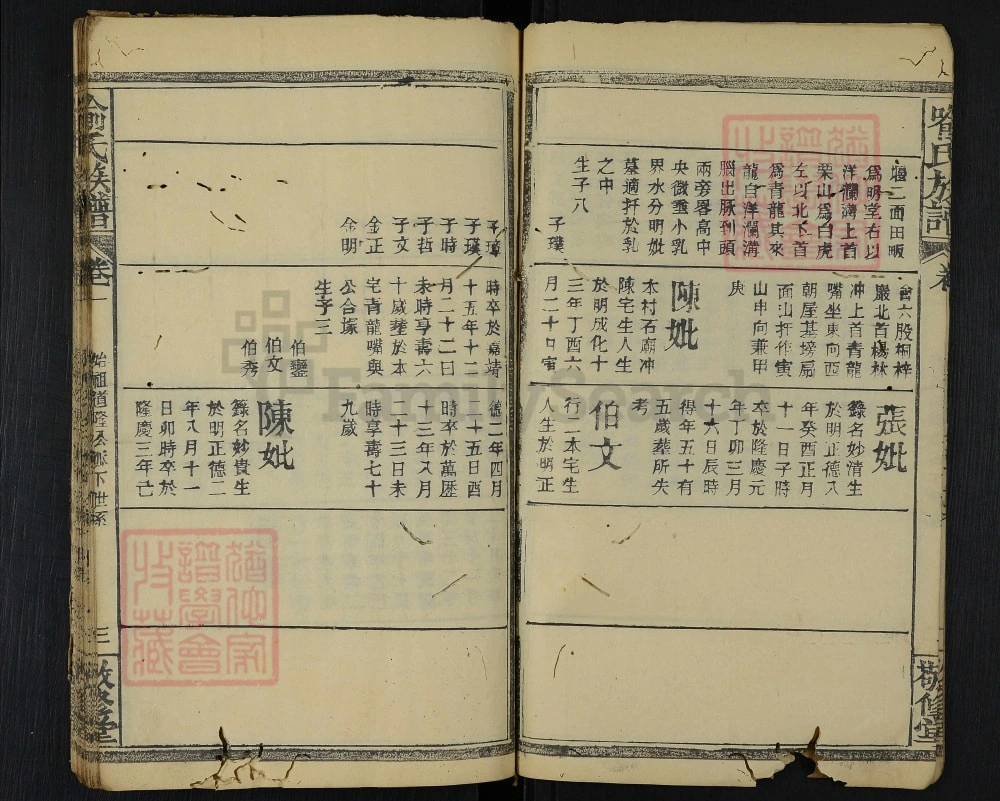 喻氏族譜
卷
敬修堂
堰二面田畈
為明堂右以
洋瀾溝上首
栗山為白虎
左以北下首
為青龍其來
龍自洋瀾溝
腦出脉到頭
兩旁畧高中
央微垂小乳
界水分明妣
墓適扦於乳
之中
生子八
子璞
會六股桐梓
嚴北首楊林
冲上首青龍
嘴坐東向西
朝屋基塝局
面山扦作寅
山申向兼甲
庚
陳妣
本村石廟冲
陳宅生人生
於明成化十
三年丁酉六
月二十口寅
張妣
籙名妙清生
於明正德八
年癸酉正月
十一日子時
卒於隆慶元
年丁卯三月
十六日辰時
得年五十有
五歲葬所失
考
伯文
行二本宅生
人生於明正
子璋
子璞
子時
子哲
子文
金正
金明
時卒於嘉靖
十五年十二
月二十二日
未時享壽六
十歲葬於本
宅青龍嘴與
公合塚
生子三
伯鑾
伯文
伯秀
德二年四月
二十五日酉
時卒於萬歷
十三年八月
二十三日未
時享壽七十
九歲
陳妣
籙名妙貴生
於明正德二
年八月十一
日卯時卒於
隆慶三年亡
喻氏族譜
卷一
始祖道隆公派下世系
三
敬修堂
譜學會
收藏
FamilySearch